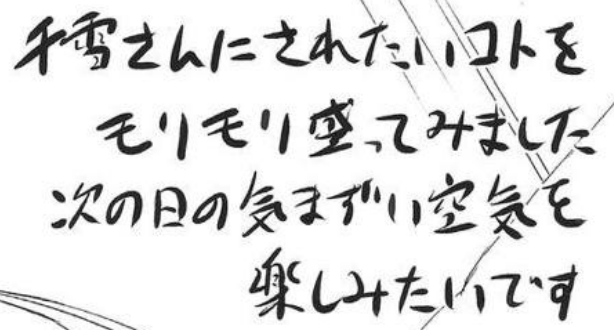 千雪さんにされたいコトを
モリモリ盛ってみました
次の日の気まずい空気を
楽しみたいです